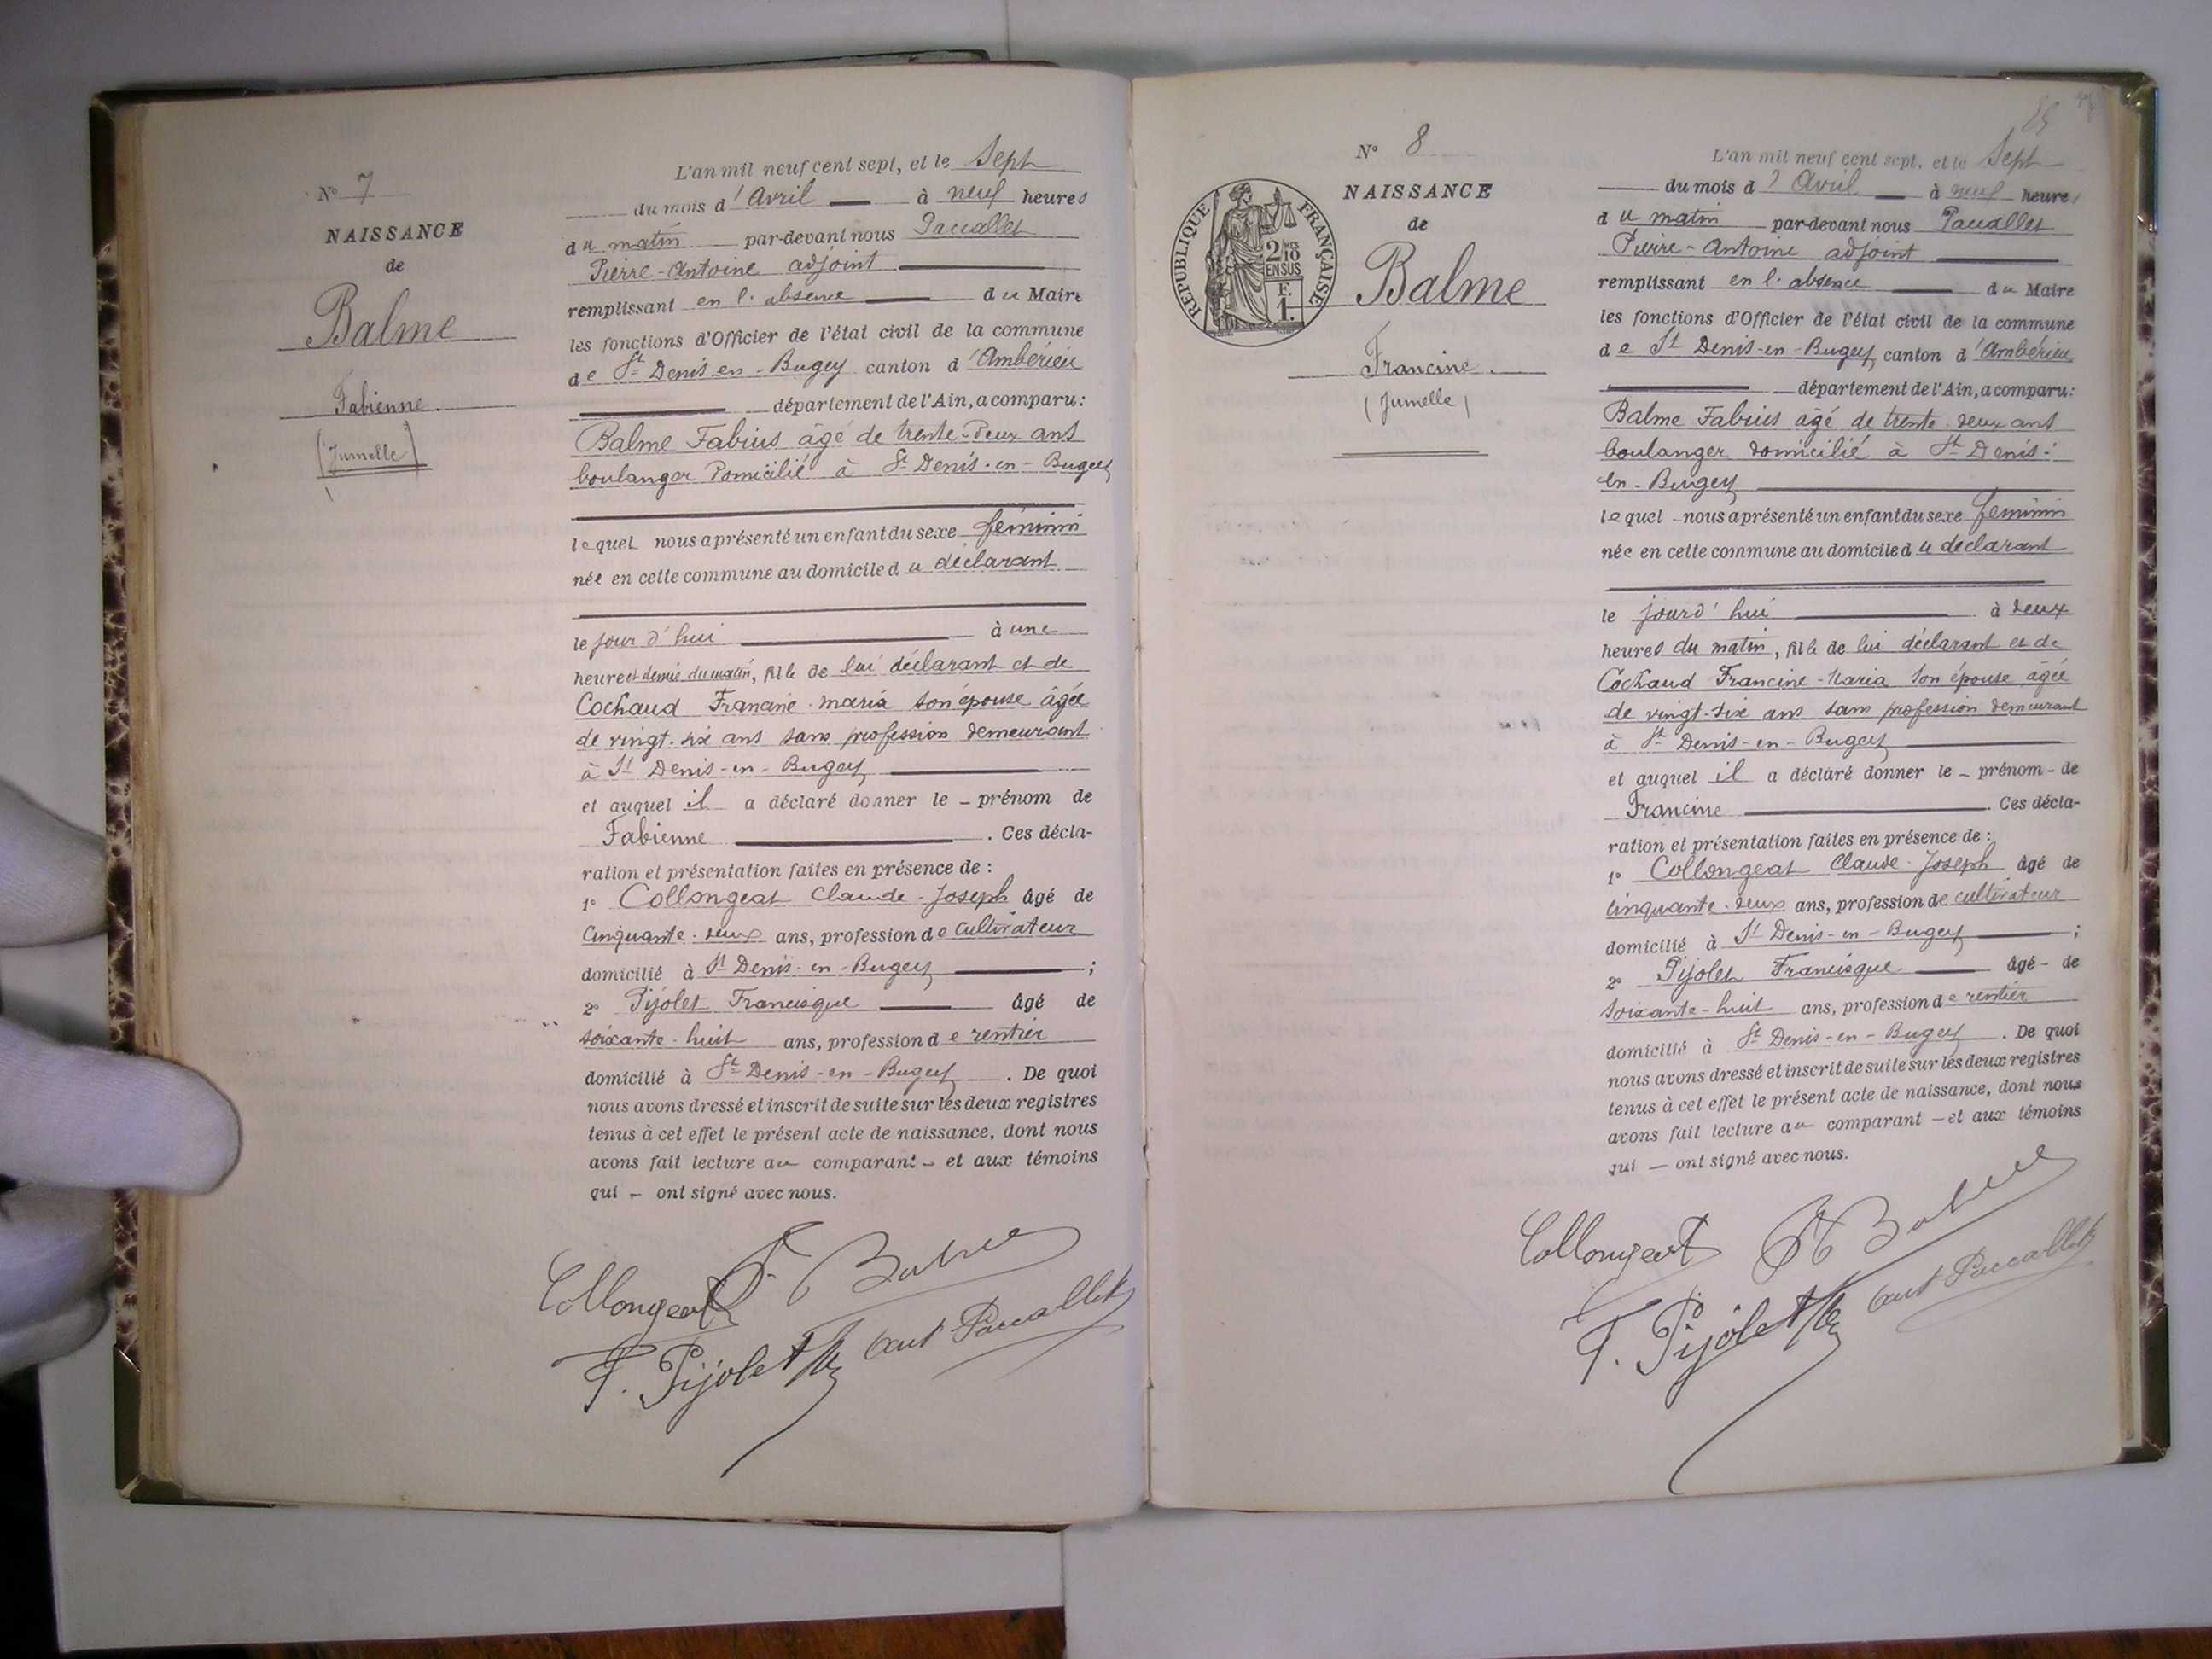 N° 7
NAISSANCE
de
Balme
Fabienne.
(Jumelle)
L'an mil neuf cent sept, et le Sept
du mois d'Avril à neuf heures
du matin par-devant nous Paccallet
Pierre-Antoine adjoint
remplissant en l'absence du Maire
les fonctions d'Officier de l'état civil de la commune
de St Denis-en-Bugey canton d'Ambérieu
département de l'Ain, a comparu:
Balme Fabius âgé de trente-deux ans
boulanger domicilié à St Denis-en-Bugey
lequel nous a présenté un enfant du sexe féminin
née en cette commune au domicile du déclarant
le jour d'hui à une
heure et demie du matin, fille de lui déclarant et de
Cochaud Francine-Maria son épouse âgée
de vingt-six ans sans profession demeurant
à St Denis-en-Bugey
et auquel il a déclaré donner le - prénom de
Fabienne. Ces décla-
ration et présentation faites en présence de :
1° Collongeat Claude-Joseph âgé de
cinquante-deux ans, profession de cultivateur
domicilié à St Denis-en-Bugey ;
2° Pijolet Francisque âgé de
soixante-huit ans, profession de rentier
domicilié à St Denis-en-Bugey. De quoi
nous avons dressé et inscrit de suite sur les deux registres
tenus à cet effet le présent acte de naissance, dont nous
avons fait lecture au comparant - et aux témoins
qui - ont signé avec nous.
Collongeat F. Balme
F. Pijolet ant Paccallet
85
N° 8
NAISSANCE
de
RÉPUBLIQUE FRANÇAISE
2/10
EN SUS
F.
1.
Balme
Francine.
(Jumelle)
L'an mil neuf cent sept, et le Sept
du mois d'Avril à neuf heures
du matin par-devant nous Paccallet
Pierre-Antoine adjoint
remplissant en l'absence du Maire
les fonctions d'Officier de l'état civil de la commune
de St Denis-en-Bugey canton d'Ambérieu
département de l'Ain, a comparu:
Balme Fabius âgé de trente-deux ans
boulanger domicilié à St Denis-
en-Bugey
lequel - nous a présenté un enfant du sexe féminin
née en cette commune au domicile du déclarant
le jourd'hui à deux
heures du matin, fille de lui déclarant et de
Cochaud Francine-Maria son épouse âgée
de vingt-six ans sans profession demeurant
à St Denis-en-Bugey
et auquel il a déclaré donner le - prénom - de
Francine. Ces décla-
ration et présentation faites en présence de :
1° Collongeat Claude-Joseph âgé de
cinquante-deux ans, profession de cultivateur
domicilié à St Denis-en-Bugey ;
2° Pijolet Francisque âgé - de
soixante-huit ans, profession de rentier
domicilié à St Denis-en-Bugey. De quoi
nous avons dressé et inscrit de suite sur les deux registres
tenus à cet effet le présent acte de naissance, dont nous
avons fait lecture au comparant - et aux témoins
qui - ont signé avec nous.
Collongeat F Balme
F. Pijolet ant Paccallet